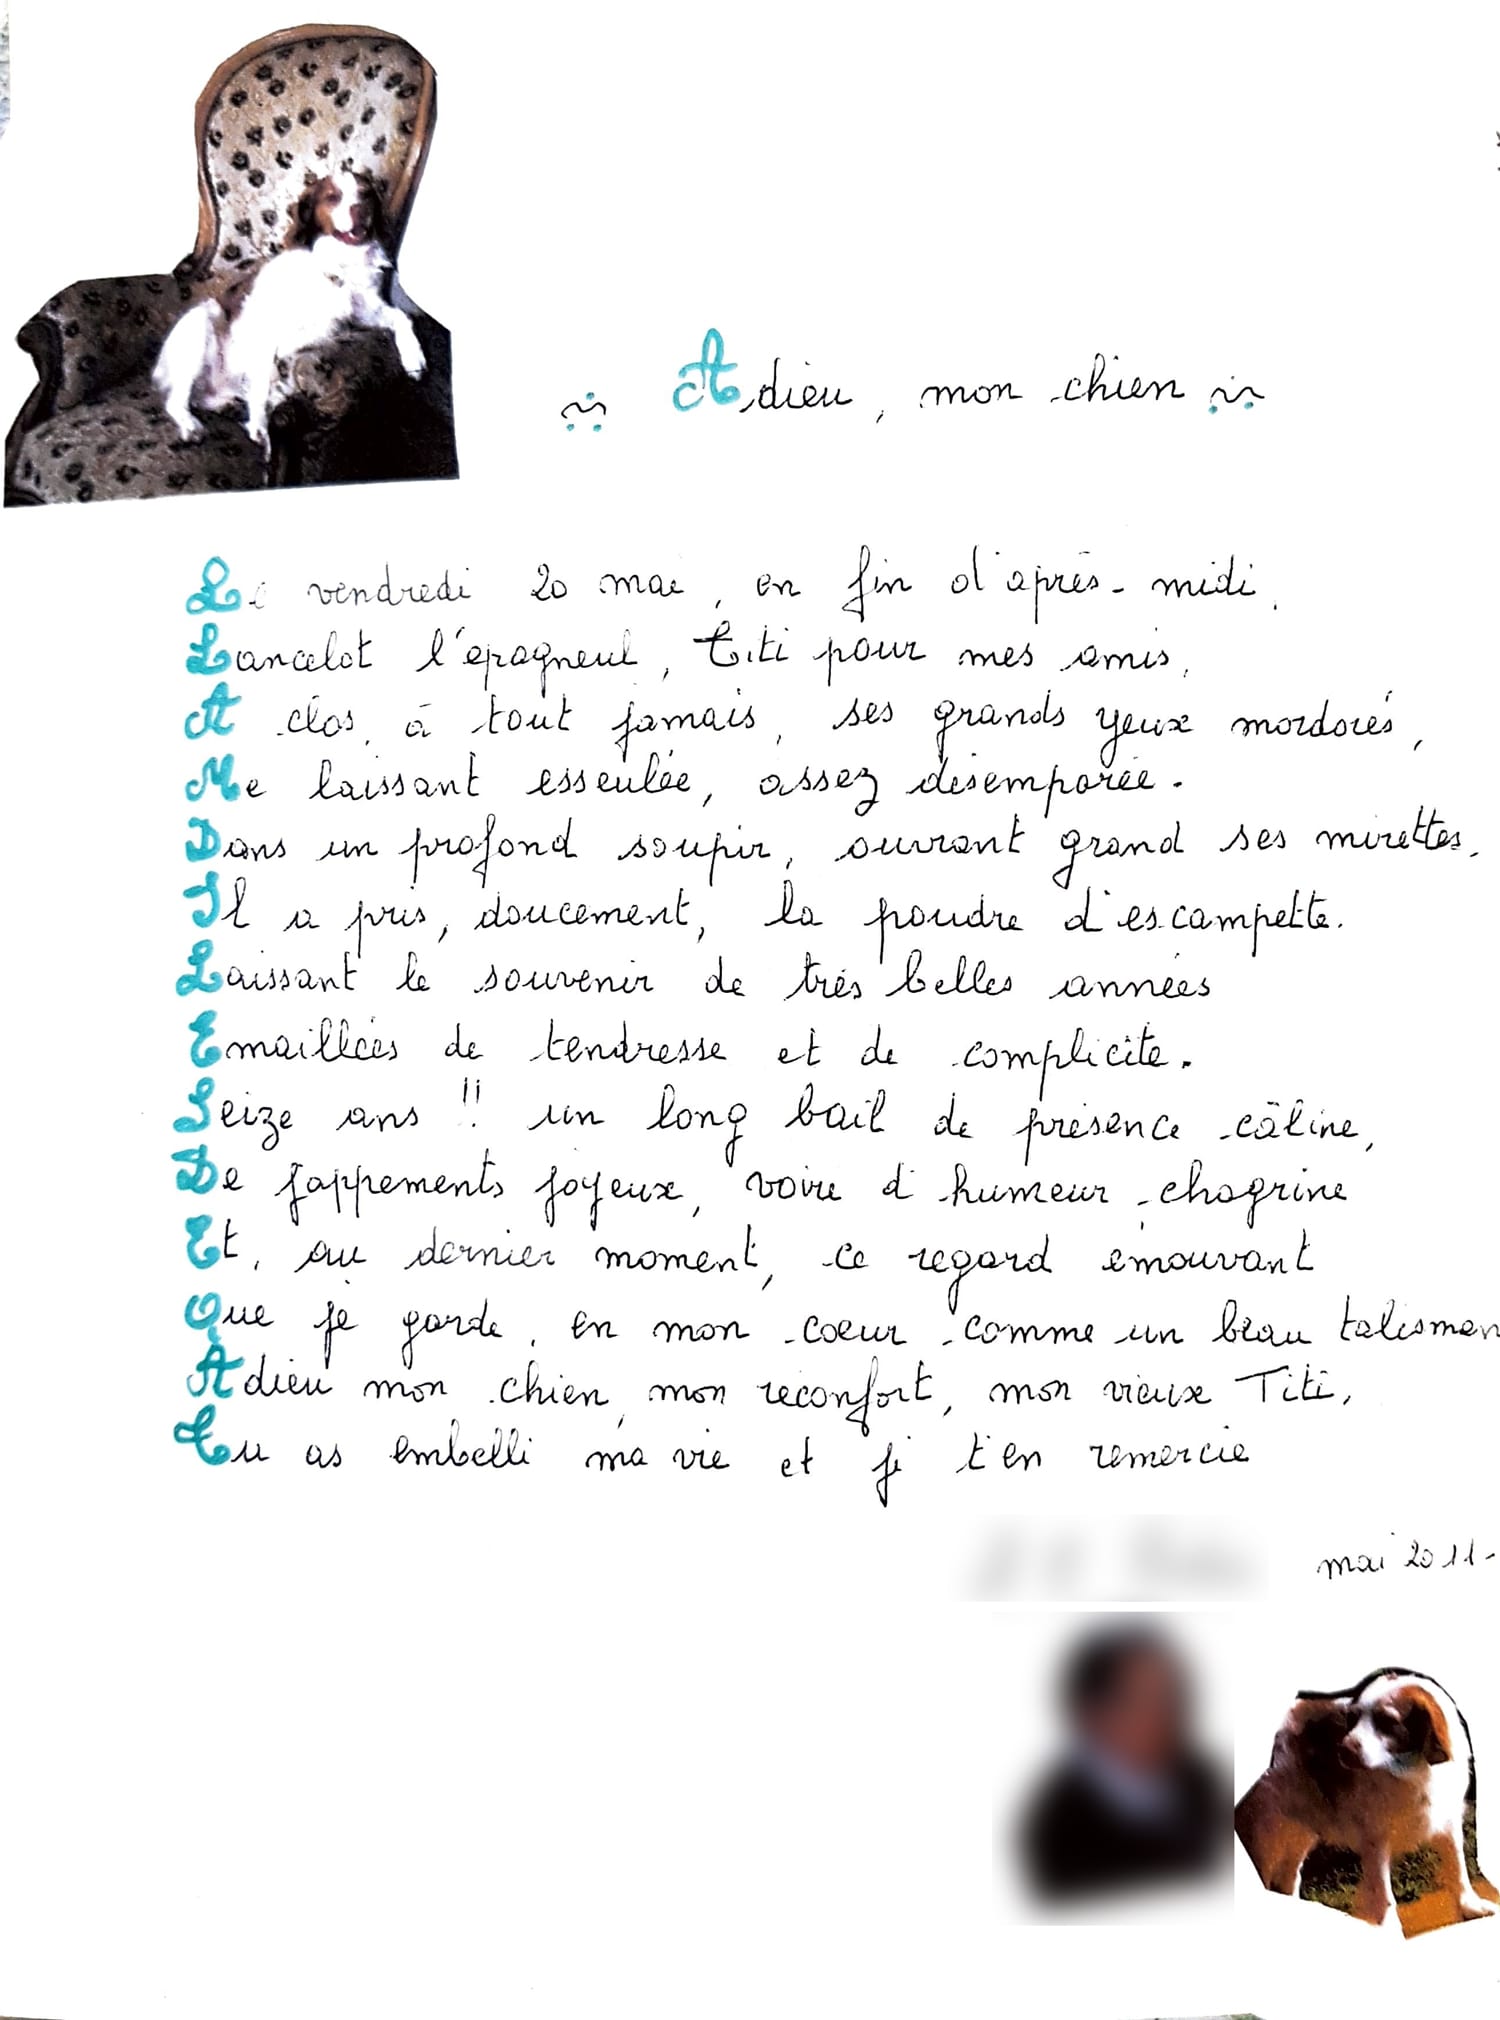 Adieu, mon chien
Le vendredi 20 mai, en fin d'après-midi,
Lancelot l'épagneul, Titi pour mes amis,
A clos, à tout jamais, ses grands yeux mordorés,
Me laissant esseulée, assez désemparée.
Dans un profond soupir, ouvrant grand ses mirettes,
Il a pris, doucement, la poudre d'escampette.
Laissant le souvenir de très belles années
Emaillées de tendresse et de complicité.
Seize ans !! un long bail de présence câline,
De jappements joyeux, voire d'humeur chagrine
Et, au dernier moment, ce regard émouvant
Que je garde, en mon coeur comme un beau talisman
Adieu mon chien, mon réconfort, mon vieux Titi,
Tu as embelli ma vie et je t'en remercie
mai 2011-